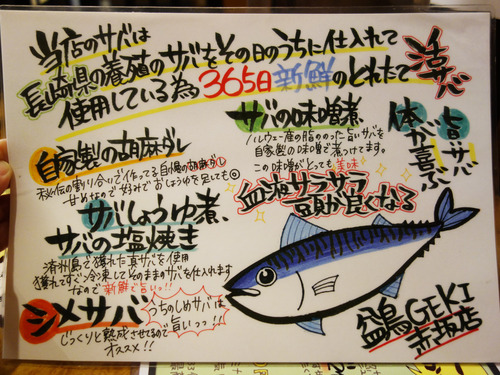 当店のサバは
長崎県の養殖のサバをその日のうちに仕入れて
使用している為365日新鮮のとれたて
活サバ
自家製の胡麻だし
秘伝の割り合いで作ってる自慢の胡麻だし
甘めなので好みでおしょうゆを足しても◎
サバの味噌煮
ノルウェー産の脂ののった旨いサバを
自家製の味噌で煮つけてます。
この味噌がとっても美味
体が喜ぶ
旨サバ
血液サラサラ
頭が良くなる
サバしょうゆ煮、
サバの塩焼き
済州島で獲れた真サバを使用
獲れてすぐ冷凍してそのままのサバを仕入れます
なので新鮮で旨いっ!!
シメサバ
うちのしめサバは
旨いっっ!!
じっくりと熟成させてるので
オススメ!!
GEKI
赤坂店